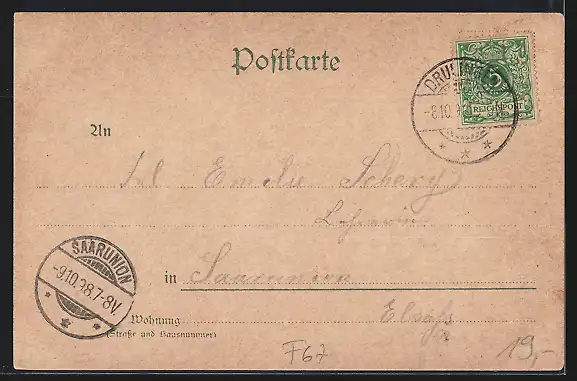 Postkarte
DRULING
-8.10.9
5
REICHSPOST
An
Emilie Schery
Lehrerin
SAARUNION
-9.10.98.7-8V.
in Saarunion
Wohnung
(Straße und Hausnummer)
Elsaß
F67
19,-